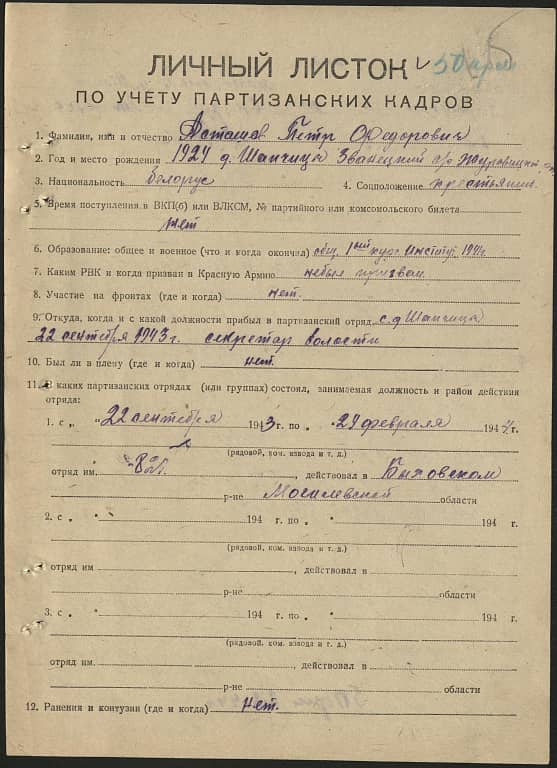 ЛИЧНЫЙ ЛИСТОК
ПО УЧЕТУ ПАРТИЗАНСКИХ КАДРОВ
1. Фамилия, имя и отчество Асташов Петр Федорович
2. Год и место рождения 1924 д. Шапчицы Званецкий с/с Журавицкий
3. Национальность белорус 4. Соцположение крестьянин
5. Время поступления в ВКП(б) или ВЛКСМ, № партийного или комсомольского билета
нет
6. Образование: общее и военное (что и когда окончил) общ. 1ый курс институт 1941г.
7. Каким РВК и когда призван в Красную Армию небыл призван.
8. Участие на фронтах (где и когда) нет.
9. Откуда, когда и с какой должности прибыл в партизанский отряд с.д Шапчица
22 сентября 1943 г. секретар волости
10. Был ли в плену (где и когда) нет.
11. В каких партизанских отрядах (или группах) состоял, занимаемая должность и район действия
отряда:
1. с „ " 22 сентября 1943 г. по „ " 29 февраля 1944 г.
(рядовой, ком. взвода и т. д.)
отряд им. , действовал в Быховском
р-не Могилевской области
2. с „ " 194 г. по „ " 194 г.
(рядовой, ком. взвода и т. д.)
отряд им , действовал в
р-не области
3. с „ " 194 г. по „ " 194 г.
(рядовой, ком. взвода и т. д.)
отряд им. , действовал в
р-не области
12. Ранения и контузии (где и когда) нет.